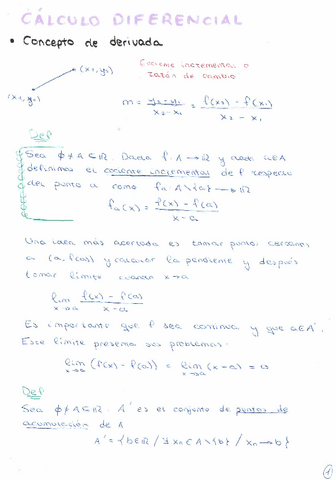 CÁLCULO DIFERENCIAL
• Concepto de derivada
Cociente incremental o
razón de cambio
(x₂, y₂)
(x₁, y₁)
m = y₂ - y₁ / x₂ - x₁ = f(x₂) - f(x₁) / x₂ - x₁
Def
Sea ∅ ≠ A ⊆ ℝ. Dada f: A → ℝ y a ∈ A
definimos el cociente incremental de f respecto
del punto a como fₐ: A \ {a} → ℝ
fₐ(x) = f(x) - f(a) / x - a
Una idea más acertada es tomar puntos cercanos
a (a, f(a)) y calcular la pendiente y después
tomar límite cuando x → a
lim x→a f(x) - f(a) / x - a
Es importante que f sea continua y que a ∈ A'.
Este límite presenta sus problemas:
lim x→a (f(x) - f(a)) = lim x→a (x - a) = 0
Def
Sea ∅ ≠ A ⊆ ℝ. A' es el conjunto de puntos de
acumulación de A
A' = {b ∈ ℝ / ∃ xₙ ∈ A \ {b} / xₙ → b}
1